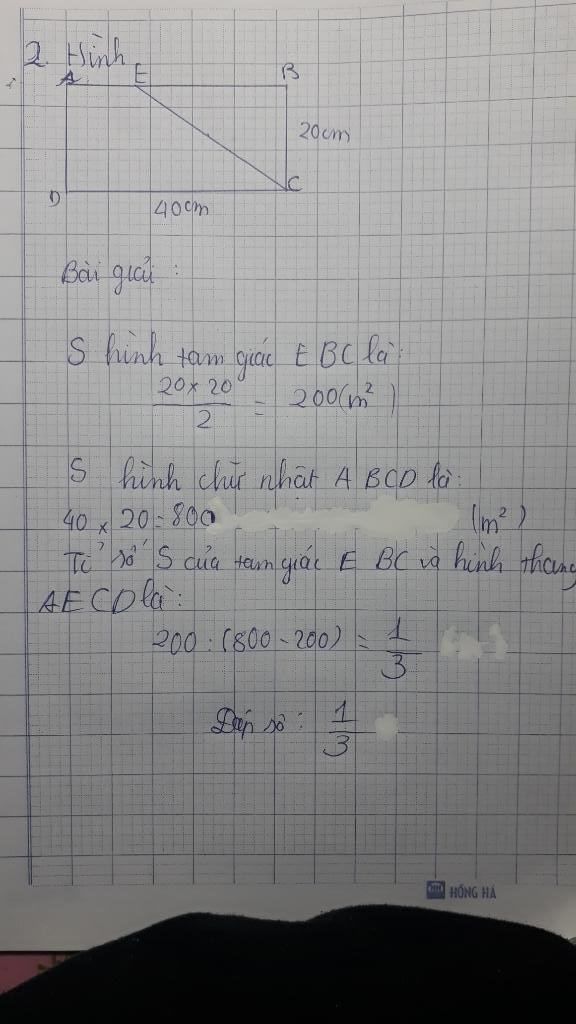 2. Hình
A E B
20cm
D C
40cm
Bài giải :
S hình tam giác EBC là:
20 x 20 / 2 = 200 (m²)
S hình chữ nhật ABCD là:
40 x 20 = 800 (m²)
Tỉ số S của tam giác EBC và hình thang
AECD là:
200 : (800 - 200) = 1/3
Đáp số : 1/3
HỒNG HÀ